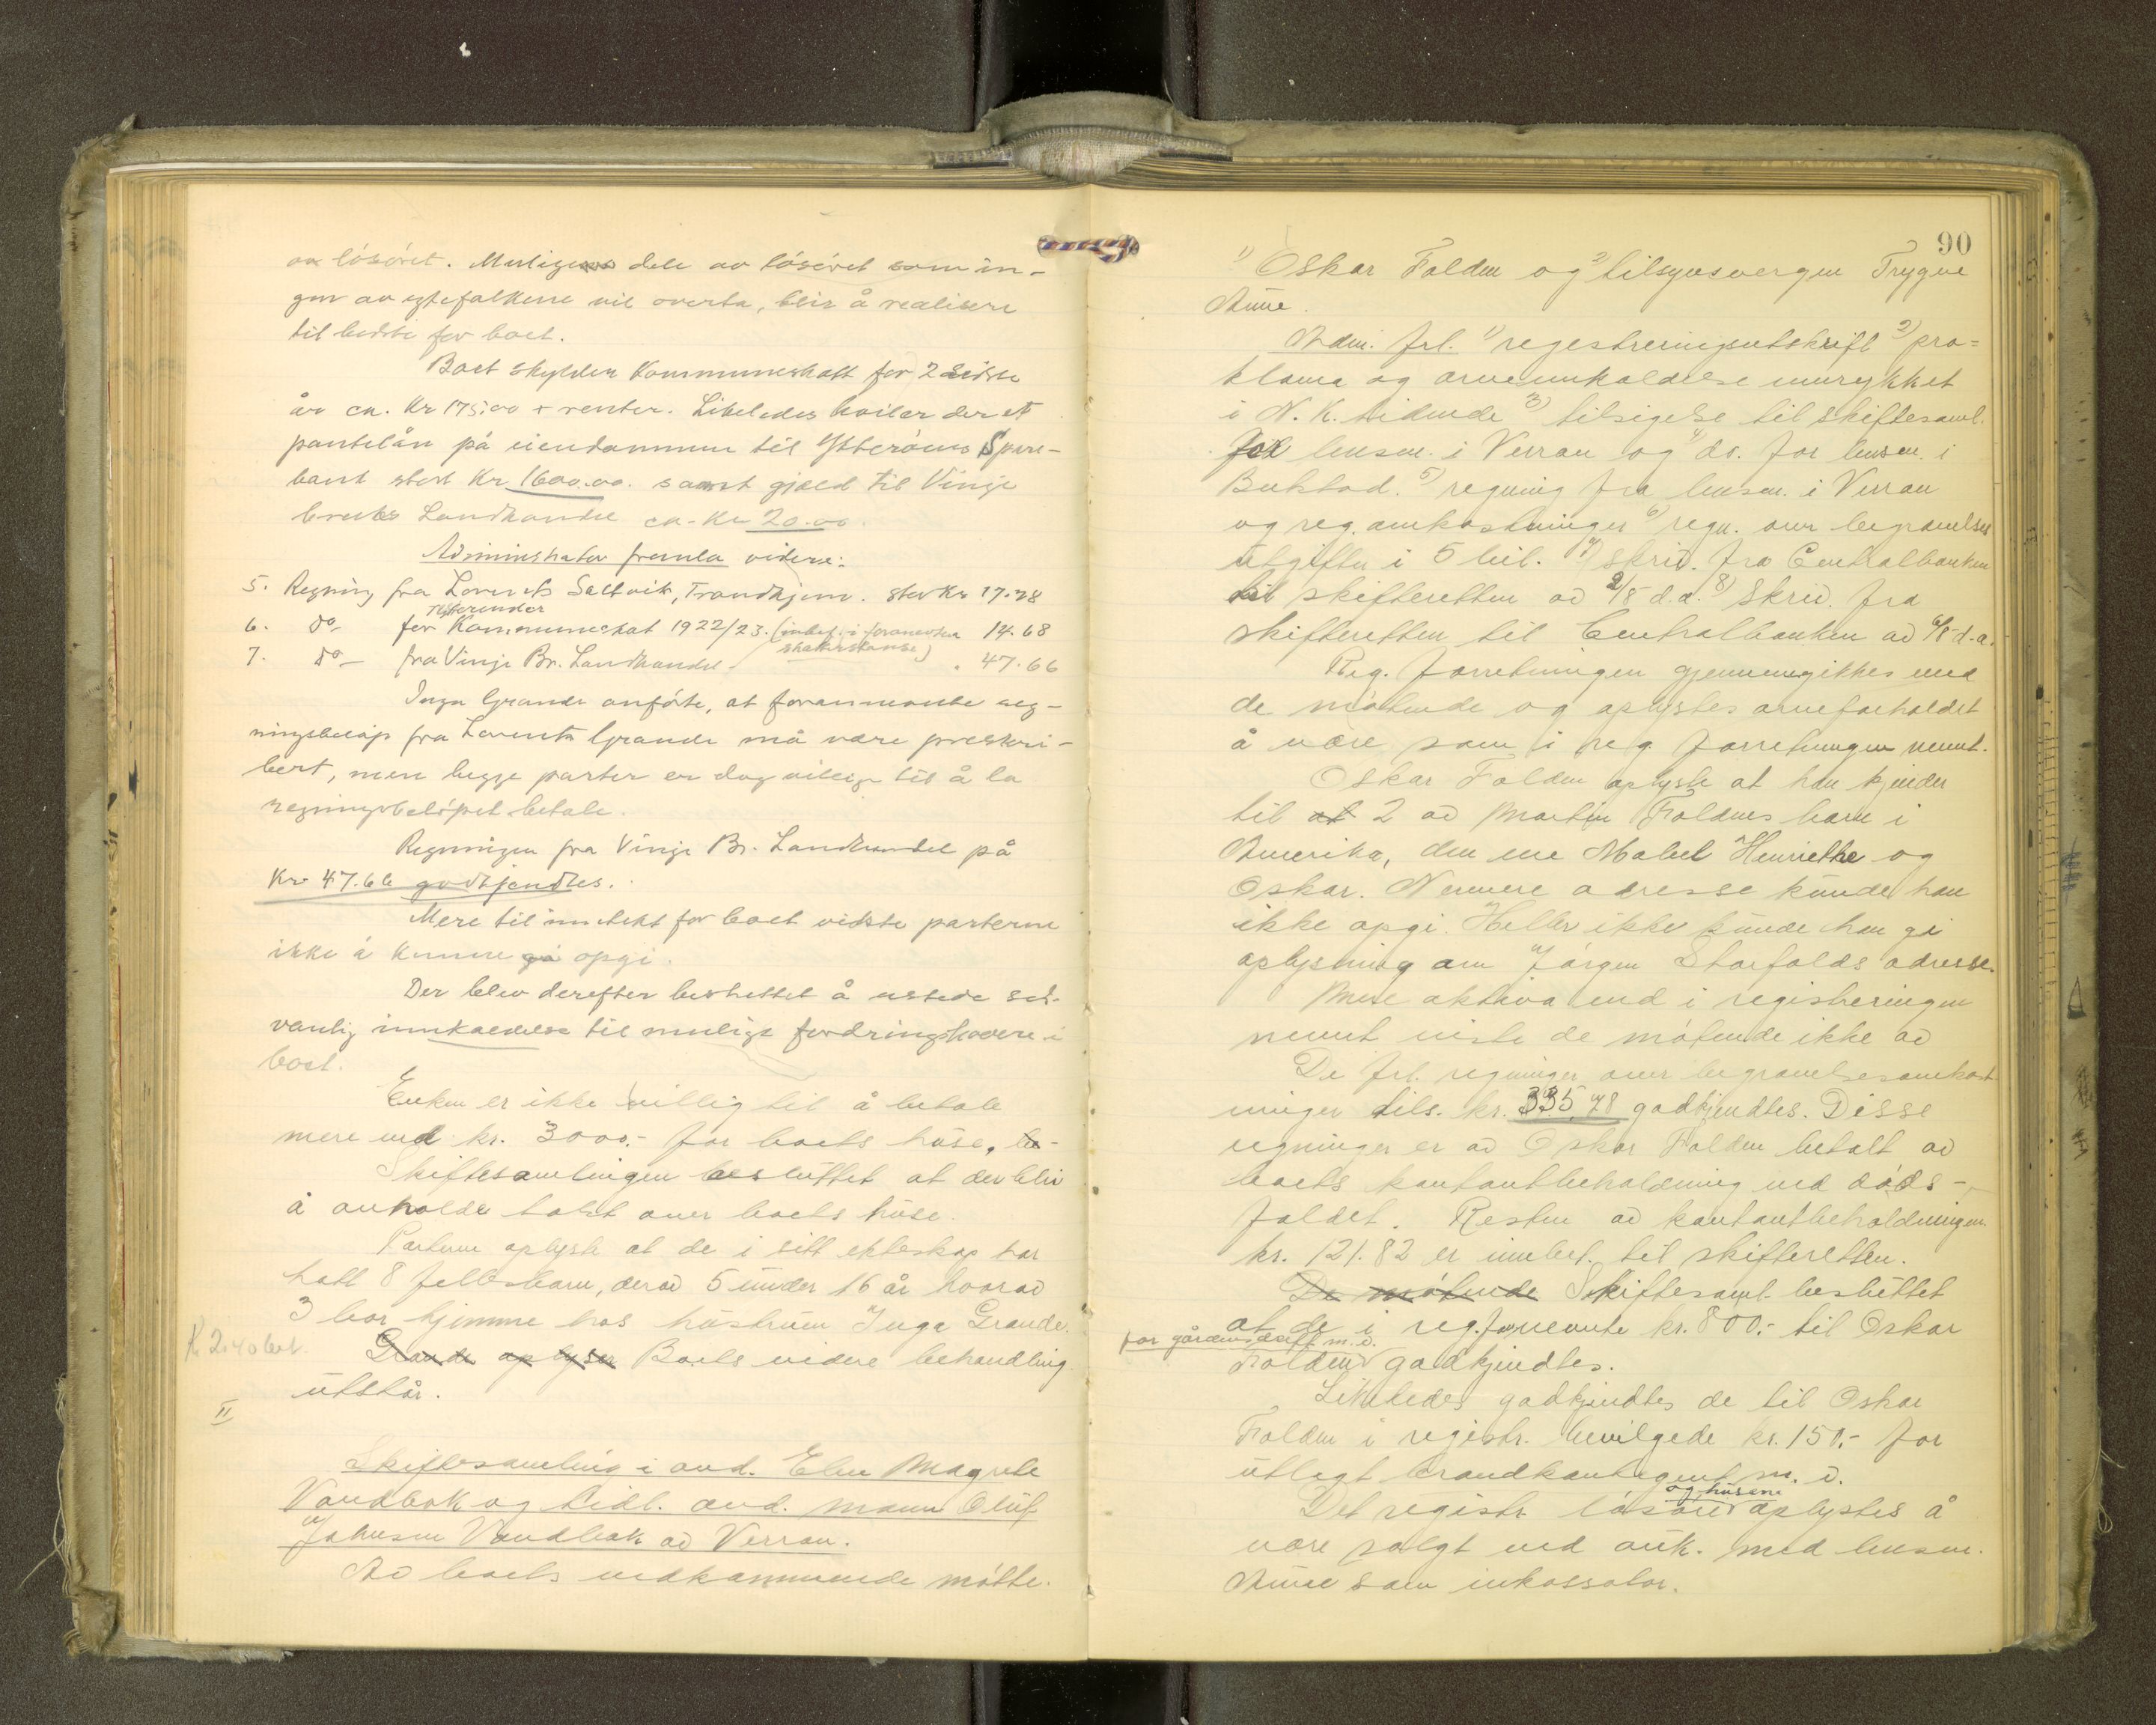 av lösöret. Mulige dele av lösöret som in-
gen av egtefolkene vil overta, blir å realisere
til bedste for boet.
Boet skylder Kommuneskatt for 2 sidste
år ca. Kr 175.00 + renter. Likeledes hviler der et
pantelån på eiendommen til Ytteröens Spare-
bank stort Kr 1600.00. samt gjæld til Vinje
bruks Landhandel ca. Kr 20.00.
Administrator fremla videre:
5. Regning fra Lorents Saltvik, Trondhjem. stor Kr 17.78
resterende
6. do for Kommuneskat 1922/23. (inbef. i foranevnte 14.68
skatterestanse)
7. do fra Vinje Br. Landhandel " 47.66
Inga Grande anförte, at forannevnte reg-
ningsbelöp fra Lorents Grande må være preskri-
bert, men begge parter er dog villige til å la
regningsbelöpet betale.
Regningen fra Vinje Br. Landhandel på
Kr 47.66 godkjendtes.
Mere til inntekt for boet vidste parterne
ikke å kunne gi opgi.
Der blev derefter besluttet å utstede sed-
vanlig innkaldelse til mulige fordringshavere i
boet.
Enken er ikke villig til å betale
mere end kr. 3000.- for boets huse, be-
Skiftesamlingen besluttet at der blir
å avholde takst over boets huse.
Partene oplyste at de i sitt ekteskap har
hatt 8 fellesbarn, derav 5 under 16 år hvorav
3 bor hjemme hos hustruen Inga Grande.
K 2.40 bet.
Grande oplyser Boets videre behandling
utstår.
II
Skiftesamling i avd. Elen Magrete
Vandbak og tidl. avd. mann Oluf
Johnsen Vandbak av Verran.
Av boets vedkommende mötte.
90
1) Oskar Folden og 2) tilsynsvergen Trygve
Aune.
Adm. frl. 1) registreringsutskrift 2) pro=
klama og arveinnkaldelse innrykket
i N. K. tidende 3) tilsigelse til skiftesaml.
for lensm. i Verran og 4) do. for lensm. i
Beitstad. 5) regning fra lensm. i Verran
og reg. omkostninger 6) regn. over begravelses
utgifter i 5 bil. 7) skriv. fra Centralbanken
til skifteretten av 2/5 d.a. 8) Skriv. fra
skifteretten til Centralbanken av 6/5 d.a.
Reg. forretningen gjennemgikkes med
de mötende og oplystes arveforholdet
å være som i reg. forretningen nevnt.
Oskar Folden oplyste at han kjender
til at 2 av Martin Foldens barn i
Amerika, den ene Mabel Henriethe og
Oskar. Nermere adresse kunde han
ikke opgi. Heller ikke kunde han gi
oplysning om Jörgen Storfolds adresse.
Mere aktiva end i registreringen
nevnt viste de mötende ikke av
De frl. regninger over begravelsesomkost
ninger tils. kr. 335,78 godkjendtes. Disse
regninger er av Oskar Folden betalt av
boets kontantbeholdning ved döds-
faldet. Resten av kontantbeholdningen
kr. 121.82 er innbet. til skifteretten.
De mötende Skiftesaml. besluttet
at de i reg.f. nevnte kr. 800.- til Oskar
for gårdens drift m.v.
Folden godkjendtes.
Likeledes godkjendtes de til Oskar
Folden i registr. bevilgede kr. 150.- for
utlagt brandkontingent m. v.
og husene
Det registr. lösöre oplystes å
være solgt ved auk. med lensm.
Aune som inkassator.